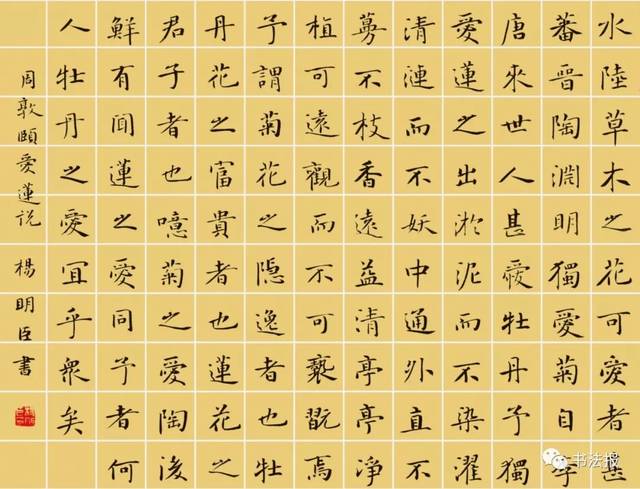 水陸草木之花可愛者甚
蕃晋陶淵明獨愛菊自李
唐來世人甚愛牡丹予獨
愛蓮之出淤泥而不染濯
清漣而不妖中通外直不
蔓不枝香遠益清亭亭淨
植可遠觀而不可褻翫焉
予謂菊花之隱逸者也牡
丹花之富貴者也蓮花之
君子者也噫菊之愛陶後
鮮有聞蓮之愛同予者何
人牡丹之愛冝乎衆矣
周敦頤愛蓮説 楊明臣書
书法报